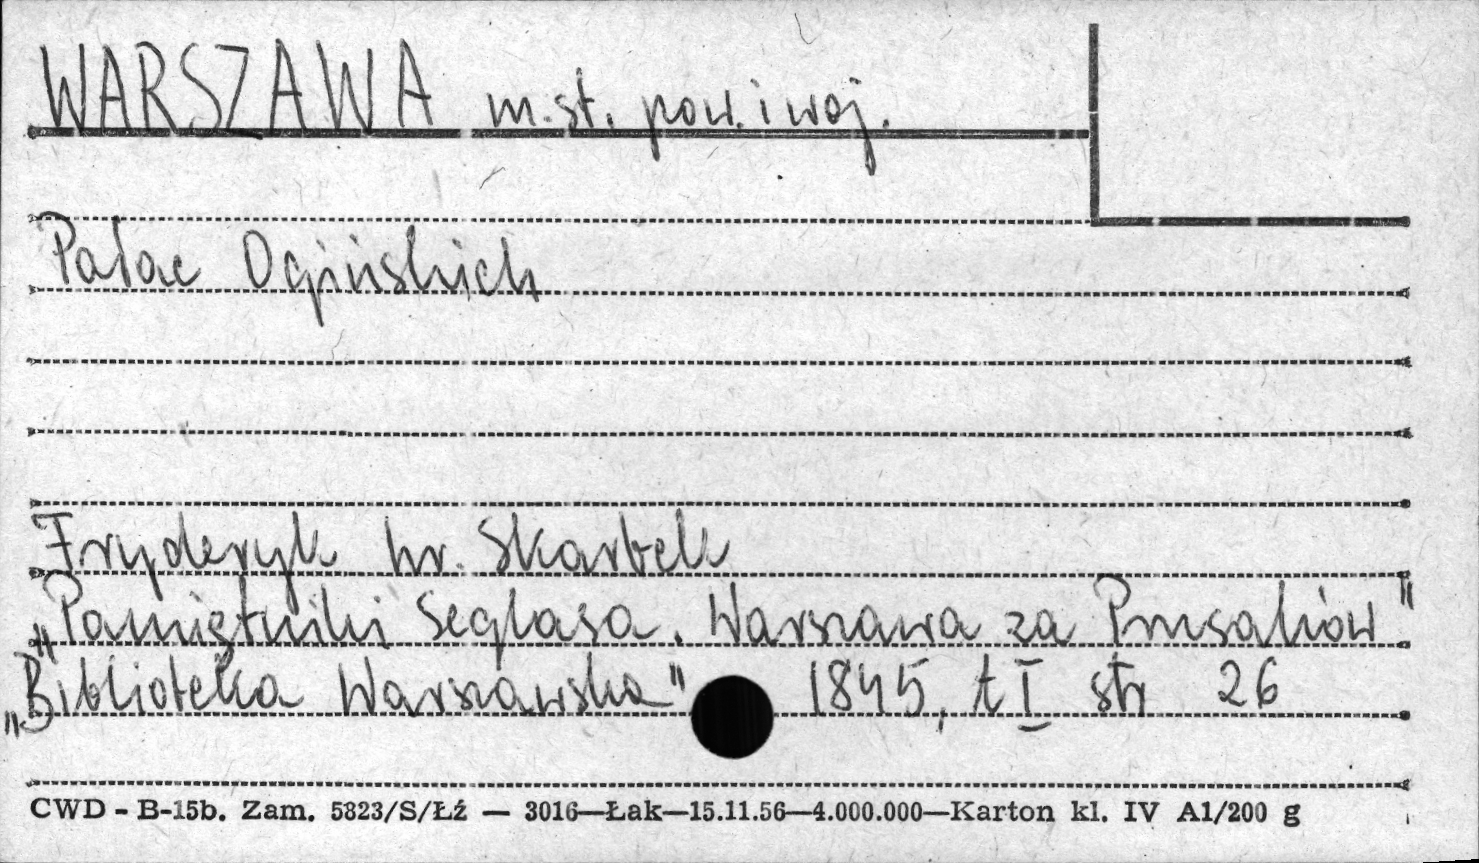 WARSZAWA m.st. pow. i woj.
Pałac Ogińskich
Fryderyk hr. Skarbek
„Pamiętniki Seglasa. Warszawa za Prusaków"
„Biblioteka Warszawska" 1845, t I str 26
CWD - B-15b. Zam. 5823/S/Łź — 3016—Łak—15.11.56—4.000.000—Karton kl. IV A1/200 g